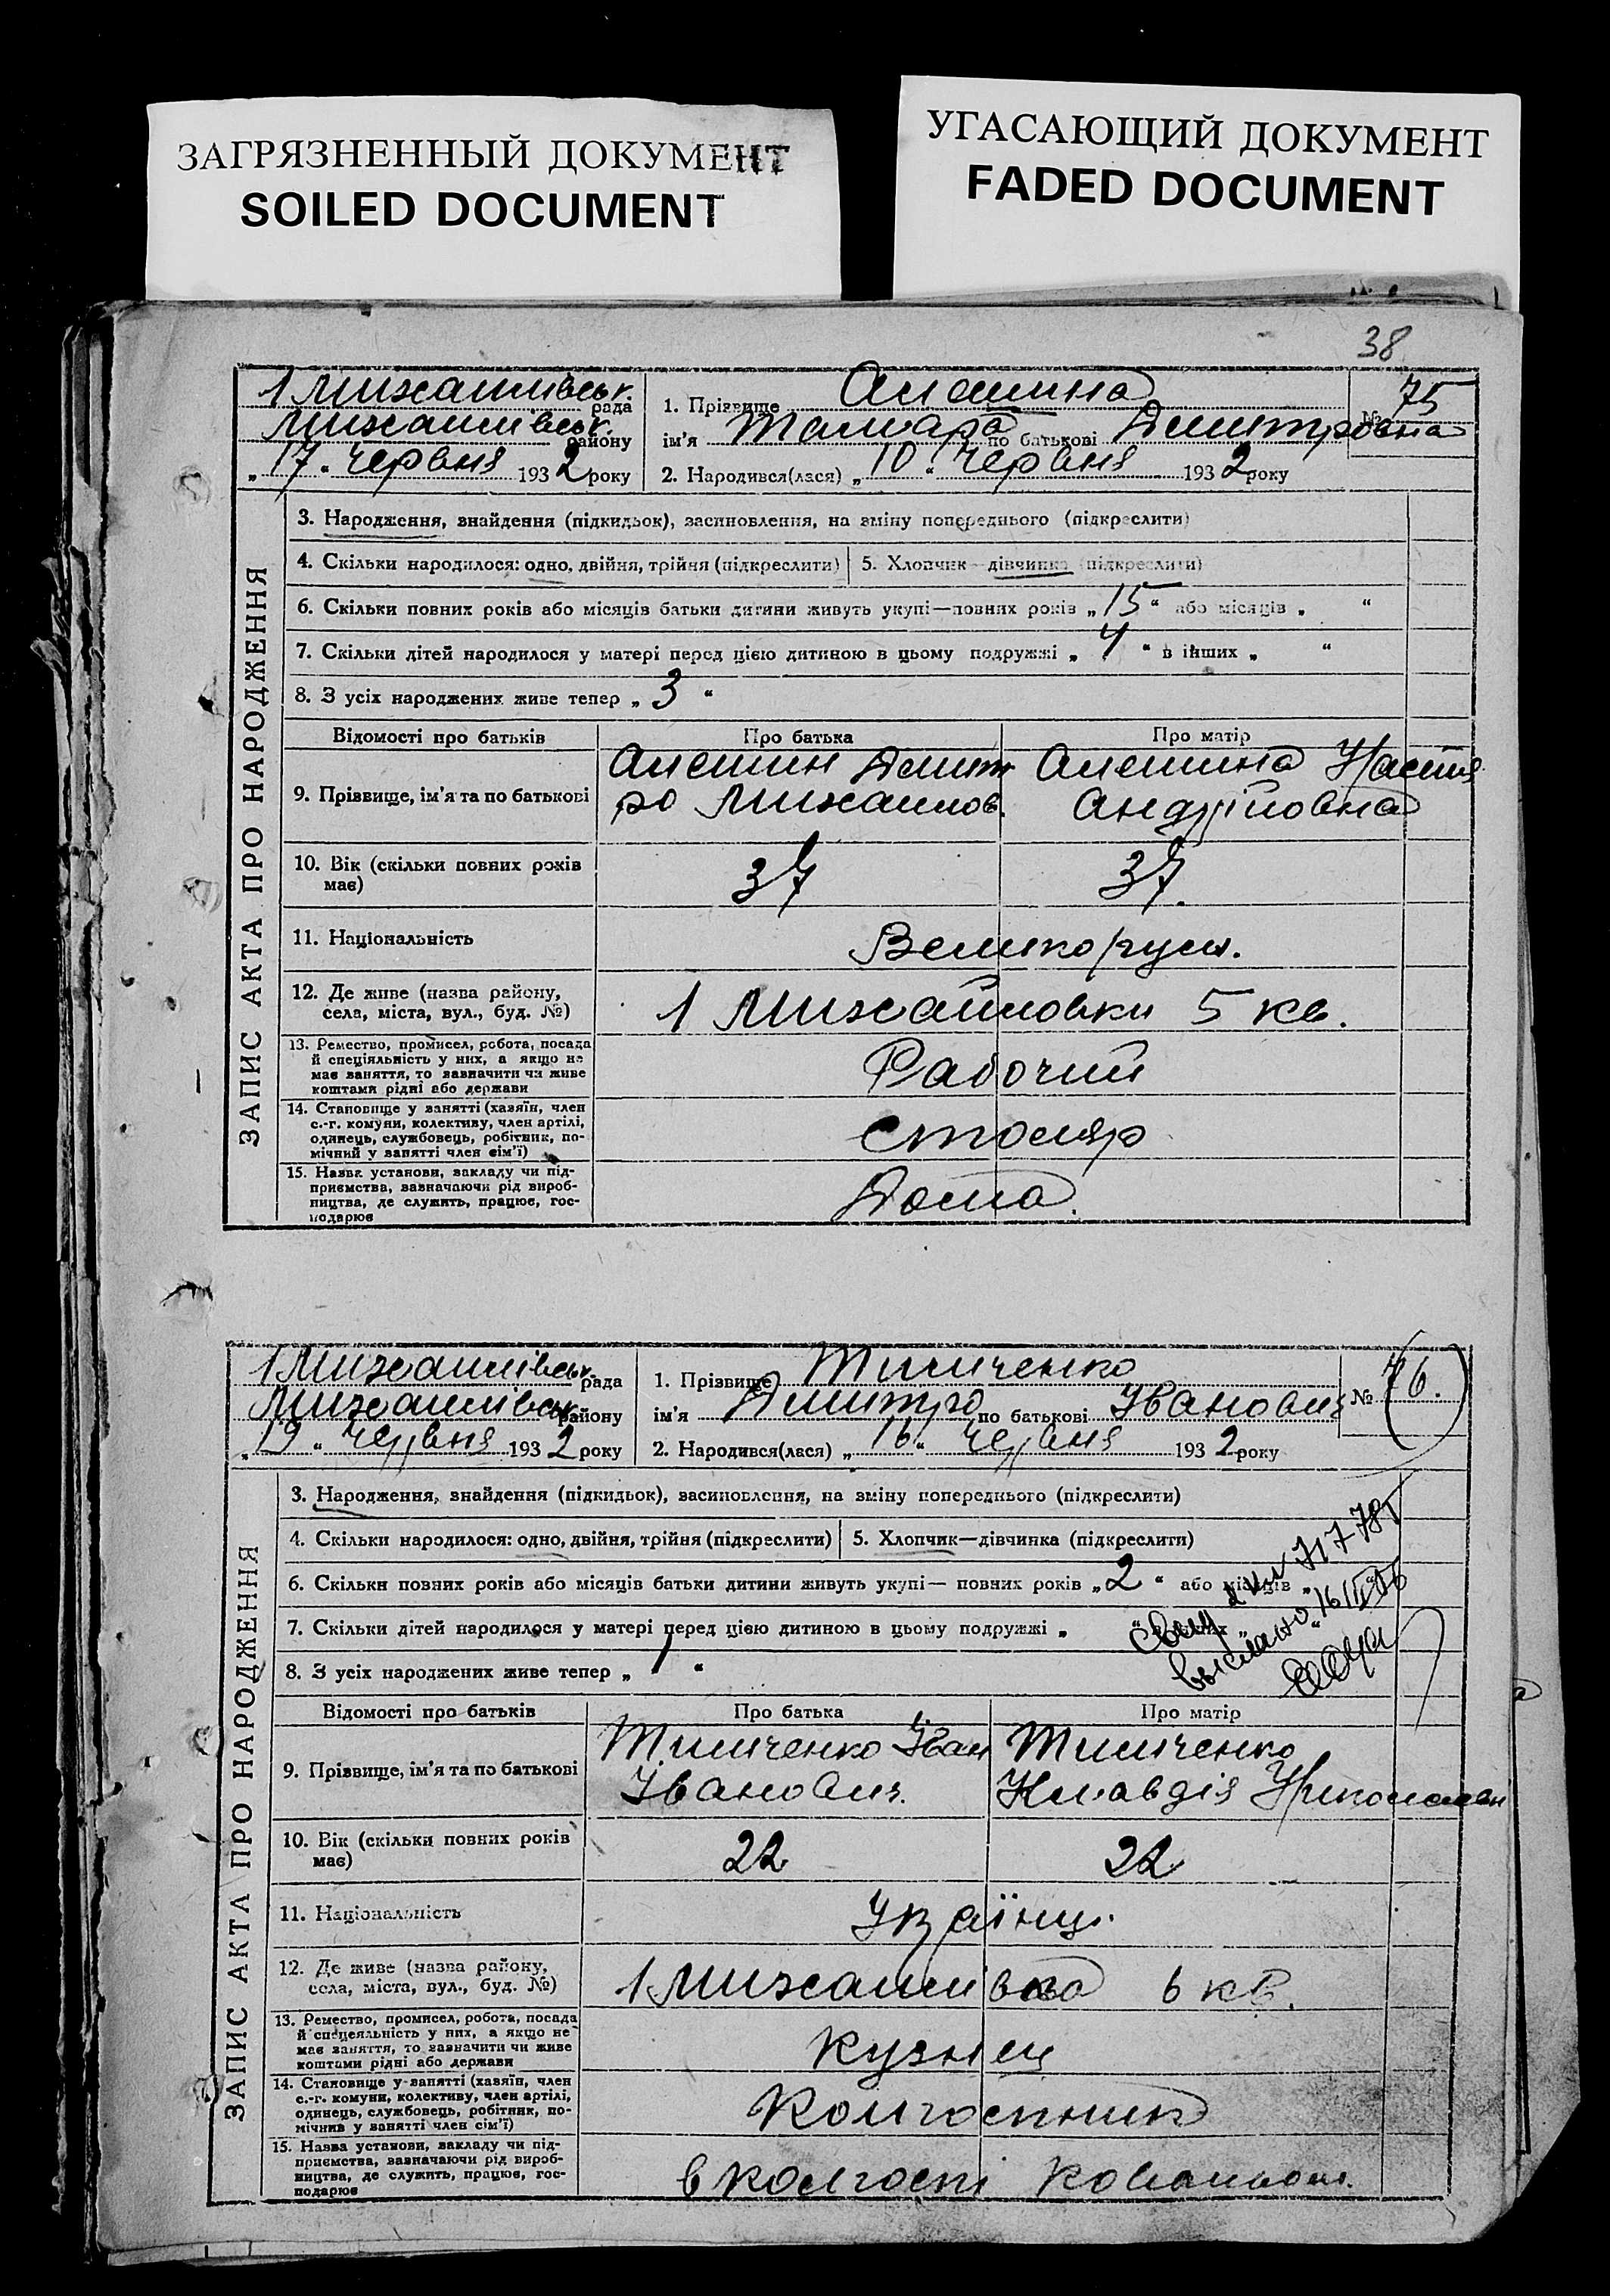 ЗАГРЯЗНЕННЫЙ ДОКУМЕНТ
SOILED DOCUMENT
УГАСАЮЩИЙ ДОКУМЕНТ
FADED DOCUMENT
38
ЗАПИС АКТА ПРО НАРОДЖЕННЯ
1 Михайлівськ. рада
Михайлівськ. району
„17“ червня 1932 року
1. Прізвище Алешина
№ 75
ім'я Тамара по батькові Дмитровна
2. Народився(лася) „10“ червня 1932 року
3. Народження, знайдення (підкидьок), засиновлення, на зміну попереднього (підкреслити)
4. Скільки народилося: одно, двійня, трійня (підкреслити) 5. Хлопчик—дівчинка (підкреслити)
6. Скільки повних років або місяців батьки дитини живуть укупі—повних років „15“ або місяців „ “
7. Скільки дітей народилося у матері перед цією дитиною в цьому подружжі „4“ в інших „ “
8. З усіх народжених живе тепер „3“
Відомості про батьків Про батька Про матір
9. Прізвище, ім'я та по батькові
Алешин Дмит
ро Михайлов.
Алешина Настя
Андрійовна
10. Вік (скільки повних років
має)
37 37.
11. Національність Великорус.
12. Де живе (назва району,
села, міста, вул., буд. №)
1 Михайловки 5 кв.
13. Ремество, промисел, робота, посада
й спеціяльність у них, а якщо не
має заняття, то зазначити чи живе
коштами рідні або держави
Рабочий
14. Становище у занятті (хазяїн, член
с.-г. комуни, колективу, член артілі,
одинець, службовець, робітник, по-
мічний у занятті член сім'ї)
Столяр
15. Назва установи, закладу чи під-
приємства, зазначаючи рід вироб-
ництва, де служить, працює, гос-
подарює
Дома.
ЗАПИС АКТА ПРО НАРОДЖЕННЯ
1 Михайлівськ. рада
Михайлівськ. району
„19“ червня 1932 року
1. Прізвище Тимченко
№ 76.
ім'я Дмитро по батькові Іванович
2. Народився(лася) „16“ червня 1932 року
3. Народження, знайдення (підкидьок), засиновлення, на зміну попереднього (підкреслити)
4. Скільки народилося: одно, двійня, трійня (підкреслити) 5. Хлопчик—дівчинка (підкреслити)
6. Скільки повних років або місяців батьки дитини живуть укупі— повних років „2“ або місяців „
7. Скільки дітей народилося у матері перед цією дитиною в цьому подружжі „ “ в інших „ “
8. З усіх народжених живе тепер „1“
Відомості про батьків Про батька Про матір
9. Прізвище, ім'я та по батькові
Тимченко Іван
Іванович.
Тимченко
Клавдія Николаевн
10. Вік (скільки повних років
має)
22 22
11. Національність Украінці.
12. Де живе (назва району,
села, міста, вул., буд. №)
1 Михайлівка 6 кв.
13. Ремество, промисел, робота, посада
й спецеяльність у них, а якщо не
має заняття, то зазначити чи живе
коштами рідні або держави
Кузнец
14. Становище у занятті (хазяїн, член
с.-г. комуни, колективу, член артілі,
одинець, службовець, робітник, по-
мічник у занятті член сім'ї)
Колгоспник
15. Назва установи, закладу чи під-
приємства, зазначаючи рід вироб-
ництва, де служить, працює, гос-
подарює
в колгоспі